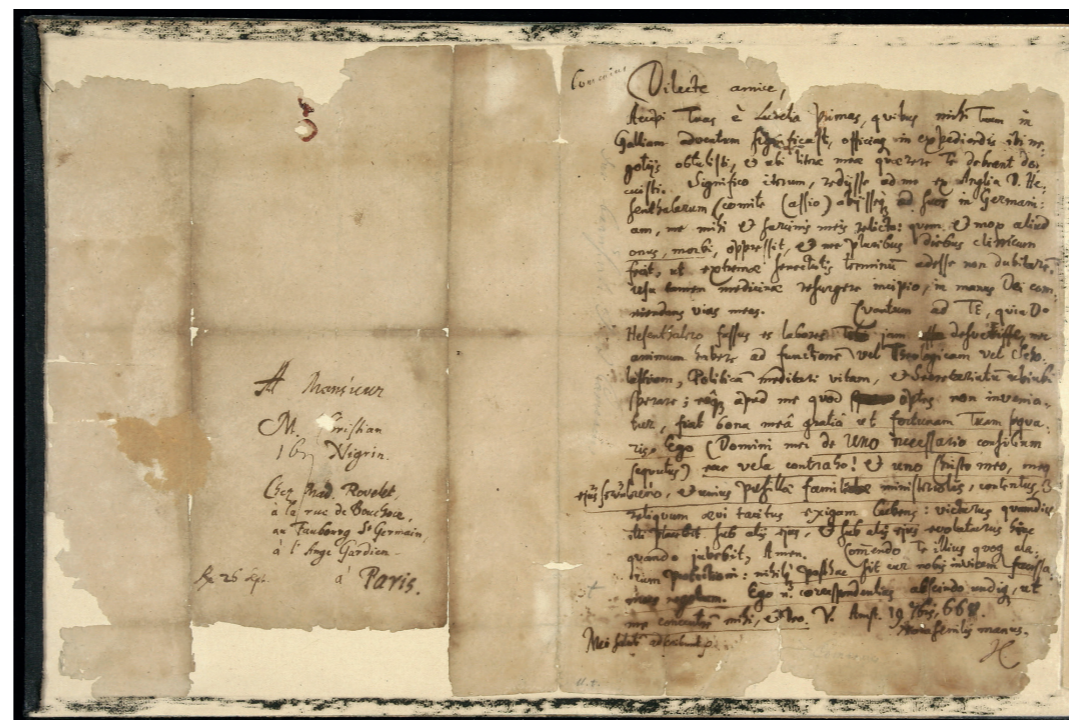 A Monsieur
M. Cristian
Nigrin.
Chez Mad. Rovelet,
à la rue de Boucherie,
au Fauborg St Germain,
à l'Ange Gardien
26 Sept. à Paris.
Comenius
Dilecte amice,
Accepi Tuas è Lutetia primas, quibus mihi Tuum in
Galliam adventum significasti, officium in expediendis ibi ne-
gotijs obtulisti, et ubi literae meae quaerere Te debeant do-
cuisti. Significo iterum, redijsse ad me ex Anglia D. He-
senthalerum (comite Cassio) abijsseque ad suos in Germani-
am, me mihi et sarcinis meis relicto: quem et mox aliud
onus, morbi, oppressit, et me pluribus diebus clinicum
fecit, ut extremae senectutis terminum adesse non dubitarem.
usu tamen medicinae resurgere incipio, in manus Dei com-
mendans vias meas. Quantum ad TE, quia Do
Hesenthalero fassus es labores jam
animum habere ad functionem vel Theologicam vel Scho-
lasticam, Politicam meditari vitam, et Secretariatum alicubi
sperare; eoque apud me quod optes non invenia-
tur, fiat bona meâ gratiâ ut fortunam Tuam sequa-
ris. Ego (Domini mei de UNO necessario consilium
sequutus) vela contraho! et uno Christo meo,
et unius ministeriolis, contentus,
reliquum aevi tacitus exigam lubens: victurus quamdiu
illi placebit sub alis ejus, et sub alis ejus evolaturus hinc
quando jubebit, Amen. Comendo Te illius quoque ala-
rum protectioni: posthac sit cur nobis invicem
Ego correspondentias abscindo undique, ut
me concentrem mihi, et Deo. V. Amst. 19 7bris, 66
manus.
Mei